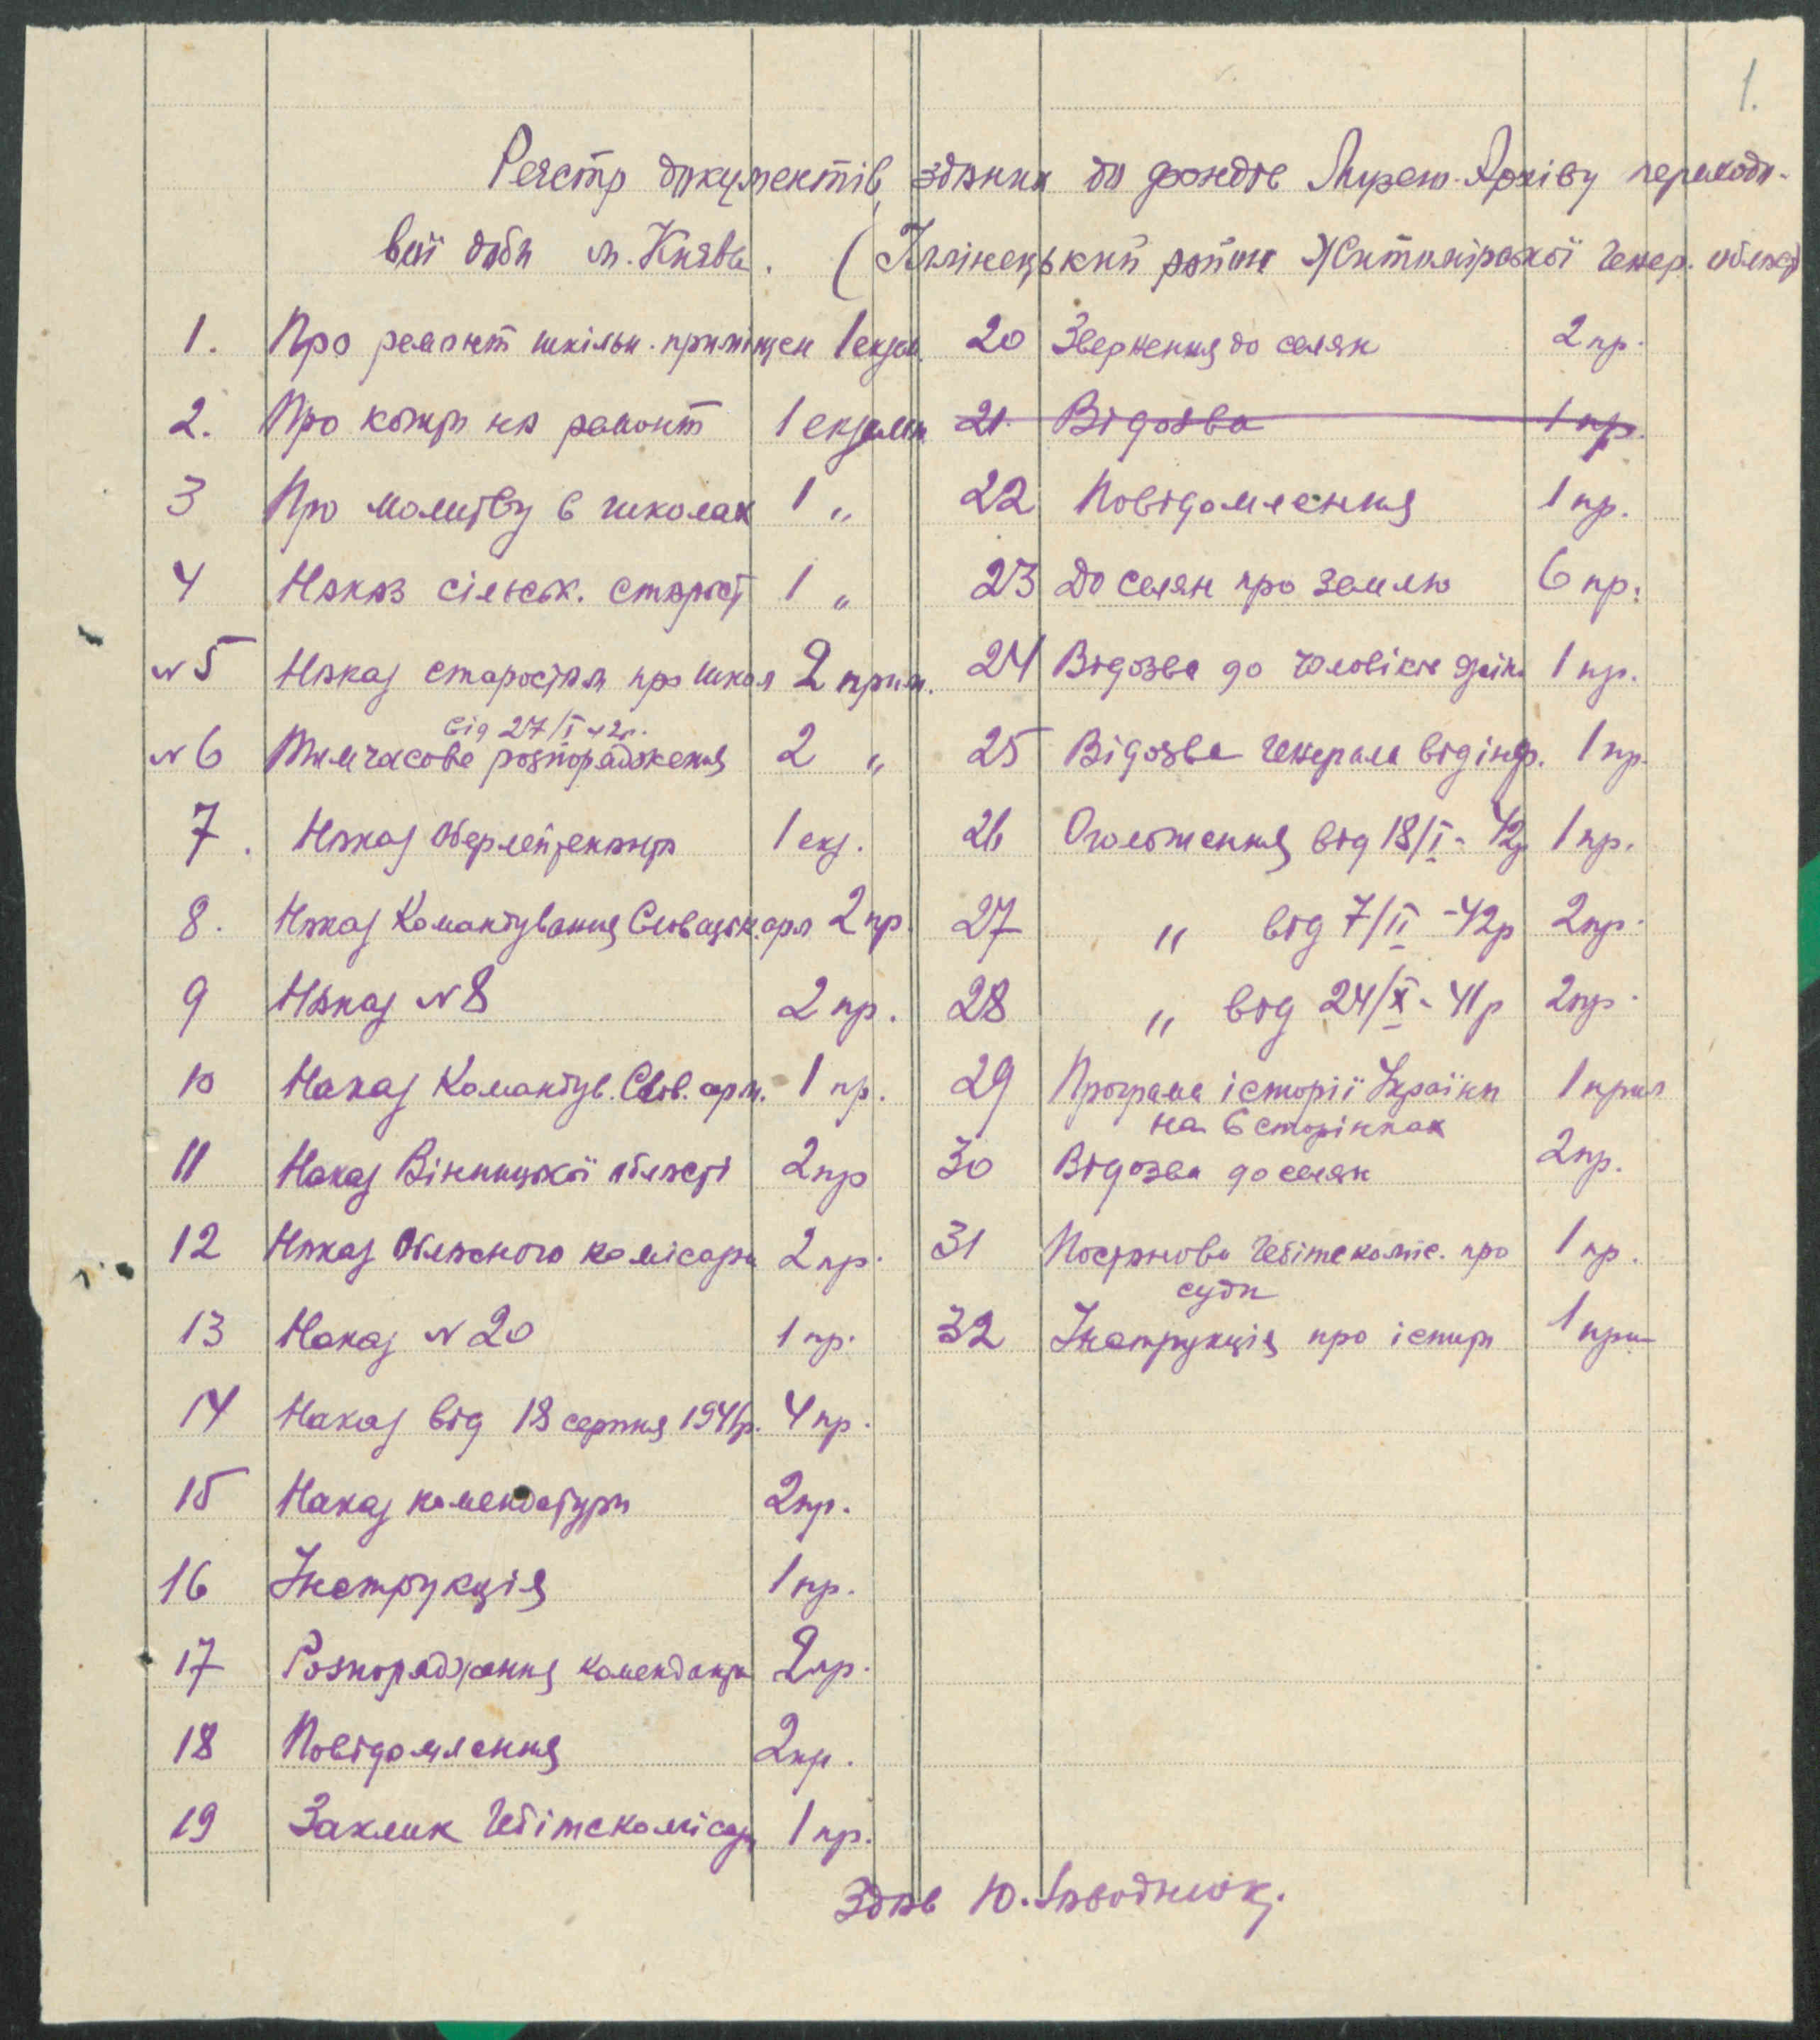 1.
Реєстр документів, зданих до фондів Музею-Архіву переходо-
вої доби м. Києва. (Іллінецький район Житомірської Генер. област)
1. Про ремонт шкільн. приміщен 1 екзем.
2. Про кошти на ремонт 1 екземп
3 Про молитву в школах 1 „
4 Наказ сільськ. старост 1 „
№5 Наказ старостам про школи 2 прим.
від 27/I 42р.
№6 Тимчасове розпорядження 2 „
7. Наказ Оберлейтенанта 1 екз.
8. Наказ Командування Словацьк. арм 2 пр.
9 Наказ №8 2 пр.
10 Наказ Командув. Слов. арм. 1 пр.
11 Наказ Вінницької області 2 пр
12 Наказ Обласного комісара 2 пр.
13 Наказ №20 1 пр.
14 Наказ від 18 серпня 1941р. 4 пр.
15 Наказ комендатури 2 пр.
16 Інструкція 1 пр.
17 Розпорядження коменданта 2 пр.
18 Повідомлення 2 пр.
19 Заклик Гебітскомісара 1 пр.
20 Звернення до селян 2 пр.
21. Відозва 1 пр.
22 Повідомлення 1 пр.
23 До селян про землю 6 пр.
24 Відозва до чоловіків 1 пр.
25 Відозва Генерала від інф. 1 пр.
26 Оголошення від 18/I - 42р 1 пр.
27 „ від 7/II - 42р 2 пр.
28 „ від 24/X - 41р 2 пр.
29 Програма історії України 1 прим
на 6 сторінках
30 Відозва до селян 2 пр.
31 Постанова Гебітскоміс. про 1 пр.
суди
32 Інструкція про 1 прим
Здав Ю.